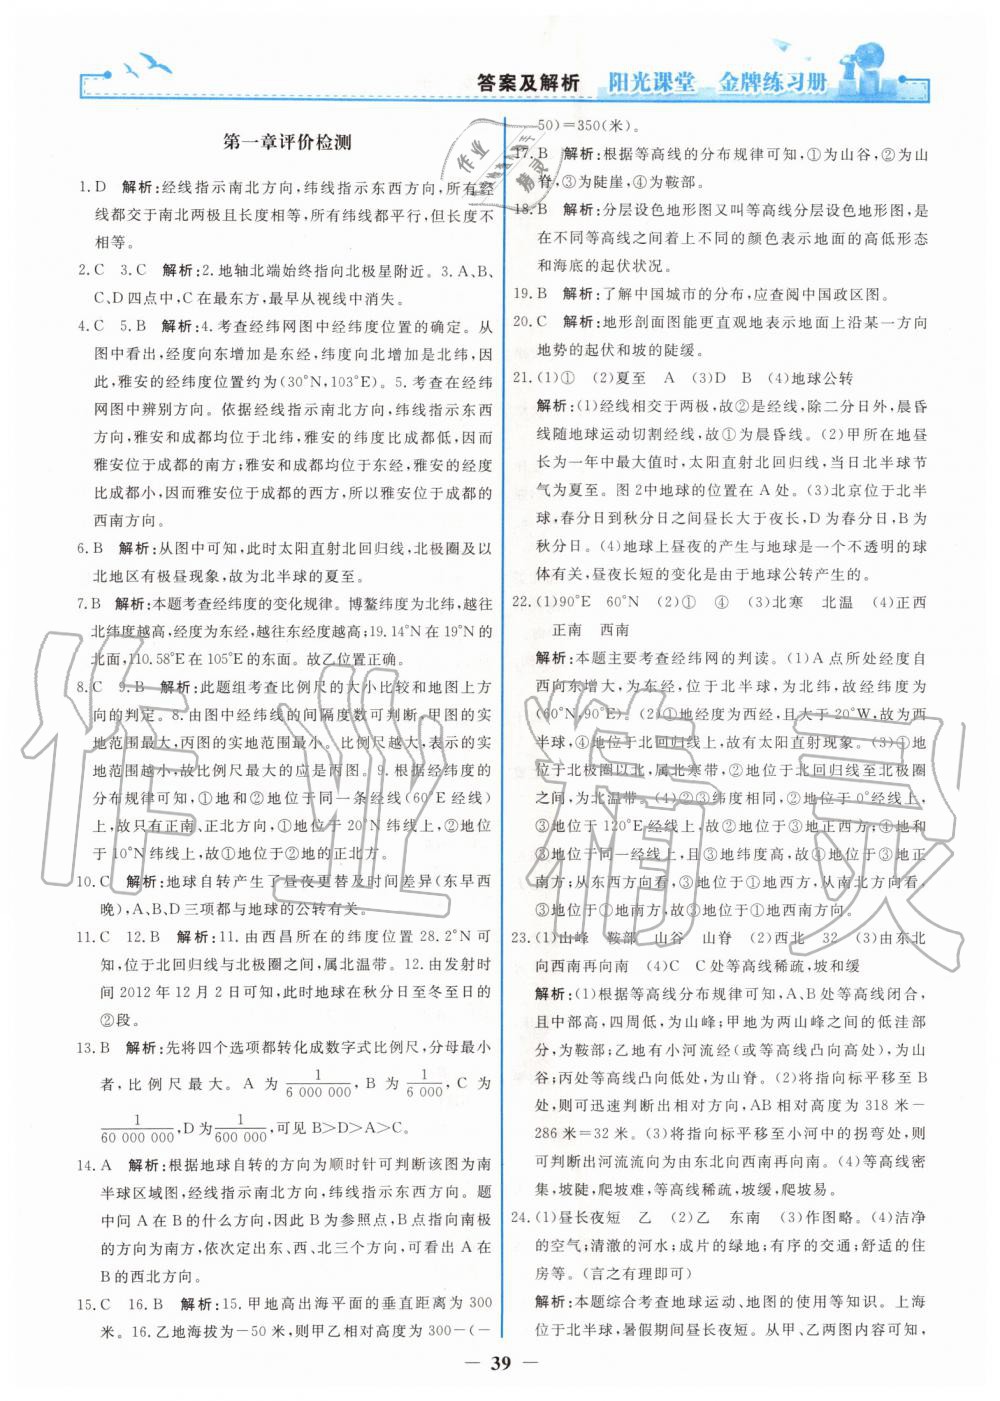 答案及解析 阳光课堂 金牌练习册
第一章评价检测
1. D 解析:经线指示南北方向,纬线指示东西方向,所有经
线都交于南北两极且长度相等,所有纬线都平行,但长度不
相等。
2. C 3. C 解析:2. 地轴北端始终指向北极星附近。3. A、B、
C、D四点中,C在最东方,最早从视线中消失。
4. C 5. B 解析:4. 考查经纬网图中经纬度位置的确定。从
图中看出,经度向东增加是东经,纬度向北增加是北纬,因
此,雅安的经纬度位置约为(30°N,103°E)。5. 考查在经纬
网图中辨别方向。依据经线指示南北方向,纬线指示东西
方向,雅安和成都均位于北纬,雅安的纬度比成都低,因而
雅安位于成都的南方;雅安和成都均位于东经,雅安的经度
比成都小,因而雅安位于成都的西方,所以雅安位于成都的
西南方向。
6. B 解析:从图中可知,此时太阳直射北回归线,北极圈及以
北地区有极昼现象,故为北半球的夏至。
7. B 解析:本题考查经纬度的变化规律。博鳌纬度为北纬,越往
北纬度越高,经度为东经,越往东经度越高;19.14°N在19°N的
北面,110.58°E在105°E的东面。故乙位置正确。
8. C 9. B 解析:此题组考查比例尺的大小比较和地图上方
向的判定。8. 由图中经纬线的间隔度数可判断,甲图的实
地范围最大,丙图的实地范围最小。比例尺越大,表示的实
地范围越小,故比例尺最大的应是丙图。9. 根据经纬度的
分布规律可知,①地和②地位于同一条经线(60°E经线)
上,故只有正南、正北方向,①地位于20°N纬线上,②地位
于10°N纬线上,故①地位于②地的正北方。
10. C 解析:地球自转产生了昼夜更替及时间差异(东早西
晚),A、B、D三项都与地球的公转有关。
11. C 12. B 解析:11. 由西昌所在的纬度位置28.2°N可
知,位于北回归线与北极圈之间,属北温带。12. 由发射时
间2012年12月2日可知,此时地球在秋分日至冬至日的
②段。
13. B 解析:先将四个选项都转化成数字式比例尺,分母最小
者,比例尺最大。A为1/6 000 000,B为1/6 000,C为
1/60 000 000,D为1/600 000,可见B>D>A>C。
14. A 解析:根据地球自转的方向为顺时针可判断该图为南
半球区域图,经线指示南北方向,纬线指示东西方向。题
中问A在B的什么方向,因此B为参照点,B点指向南极
的方向为南方,依次定出东、西、北三个方向,可看出A在
B的西北方向。
15. C 16. B 解析:15. 甲地高出海平面的垂直距离为300
米。16. 乙地海拔为-50米,则甲乙相对高度为300-(-
50)=350(米)。
17. B 解析:根据等高线的分布规律可知,①为山谷,②为山
脊,③为陡崖,④为鞍部。
18. B 解析:分层设色地形图又叫等高线分层设色地形图,是
在不同等高线之间着上不同的颜色表示地面的高低形态
和海底的起伏状况。
19. B 解析:了解中国城市的分布,应查阅中国政区图。
20. C 解析:地形剖面图能更直观地表示地面上沿某一方向
地势的起伏和坡的陡缓。
21. (1)① (2)夏至 A (3)D B (4)地球公转
解析:(1)经线相交于两极,故②是经线,除二分日外,晨昏
线随地球运动切割经线,故①为晨昏线。(2)甲所在地昼
长为一年中最大值时,太阳直射北回归线,当日北半球节
气为夏至。图2中地球的位置在A处。(3)北京位于北半
球,春分日到秋分日之间昼长大于夜长,D为春分日,B为
秋分日。(4)地球上昼夜的产生与地球是一个不透明的球
体有关,昼夜长短的变化是由于地球公转产生的。
22. (1)90°E 60°N (2)① ④ (3)北寒 北温 (4)正西
正南 西南
解析:本题主要考查经纬网的判读。(1)A点所处经度自
西向东增大,为东经,位于北半球,为北纬,坐标为
(60°N,90°E)。(2)①地经度为西经,且大于20°W,故为西
半球,④地位于北回归线上,故有太阳直射现象。(3)①地
位于北极圈以北,属北寒带,②地位于北回归线至北极圈
之间,为北温带。(4)②③纬度相同,②地位于0°经线上,
③地位于120°E经线上,故②地位于③地正西方;④地和
③地位于同一条经线上,且③地纬度高,故④地位于③地正
南方;从东西方向看,③地位于①地西方,从南北方向看,
③地位于①地南方,故③地位于①地西南方向。
23. (1)山峰 鞍部 山谷 山脊 (2)西北 32 (3)由东北
向西南再向南 (4)C C处等高线稀疏,坡和缓
解析:(1)根据等高线分布规律可知,A、B处等高线闭合,
且中部高,四周低,为山峰;甲地为两山峰之间的低洼部
分,为鞍部;乙地有小河流经(或等高线凸向高处),为山
谷;丙处等高线凸向低处,为山脊。(2)将指向标平移至B
处,则可迅速判断出相对方向,AB相对高度为318米-
286米=32米。(3)将指向标平移至小河中的拐弯处,则
可判断出河流流向为由东北向西南再向南。(4)等高线密
集,坡陡,爬坡难,等高线稀疏,坡缓,爬坡易。
24. (1)昼长夜短 乙 (2)乙 东南 (3)作图略。(4)洁净
的空气;清澈的河水;成片的绿地;有序的交通;舒适的住
房等。(言之有理即可)
解析:本题综合考查地球运动、地图的使用等知识。上海
位于北半球,暑假期间昼长夜短。从甲、乙两图内容可知,
— 39 —
作业精灵